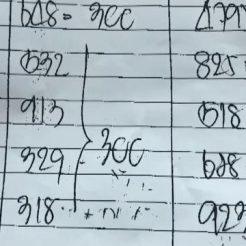 648 = 300 479
532 825
913 518
329 300 688
318 922